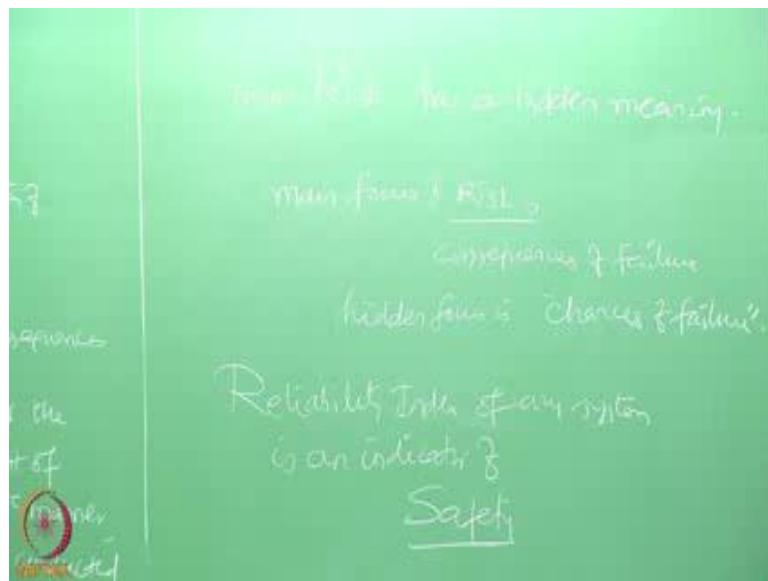 has a hidden meaning.
main focus of Risk,
consequences of failure
hidden focus is "chances of failure".
Reliability Index of any system
is an indicator of
Safety
the
of
manner